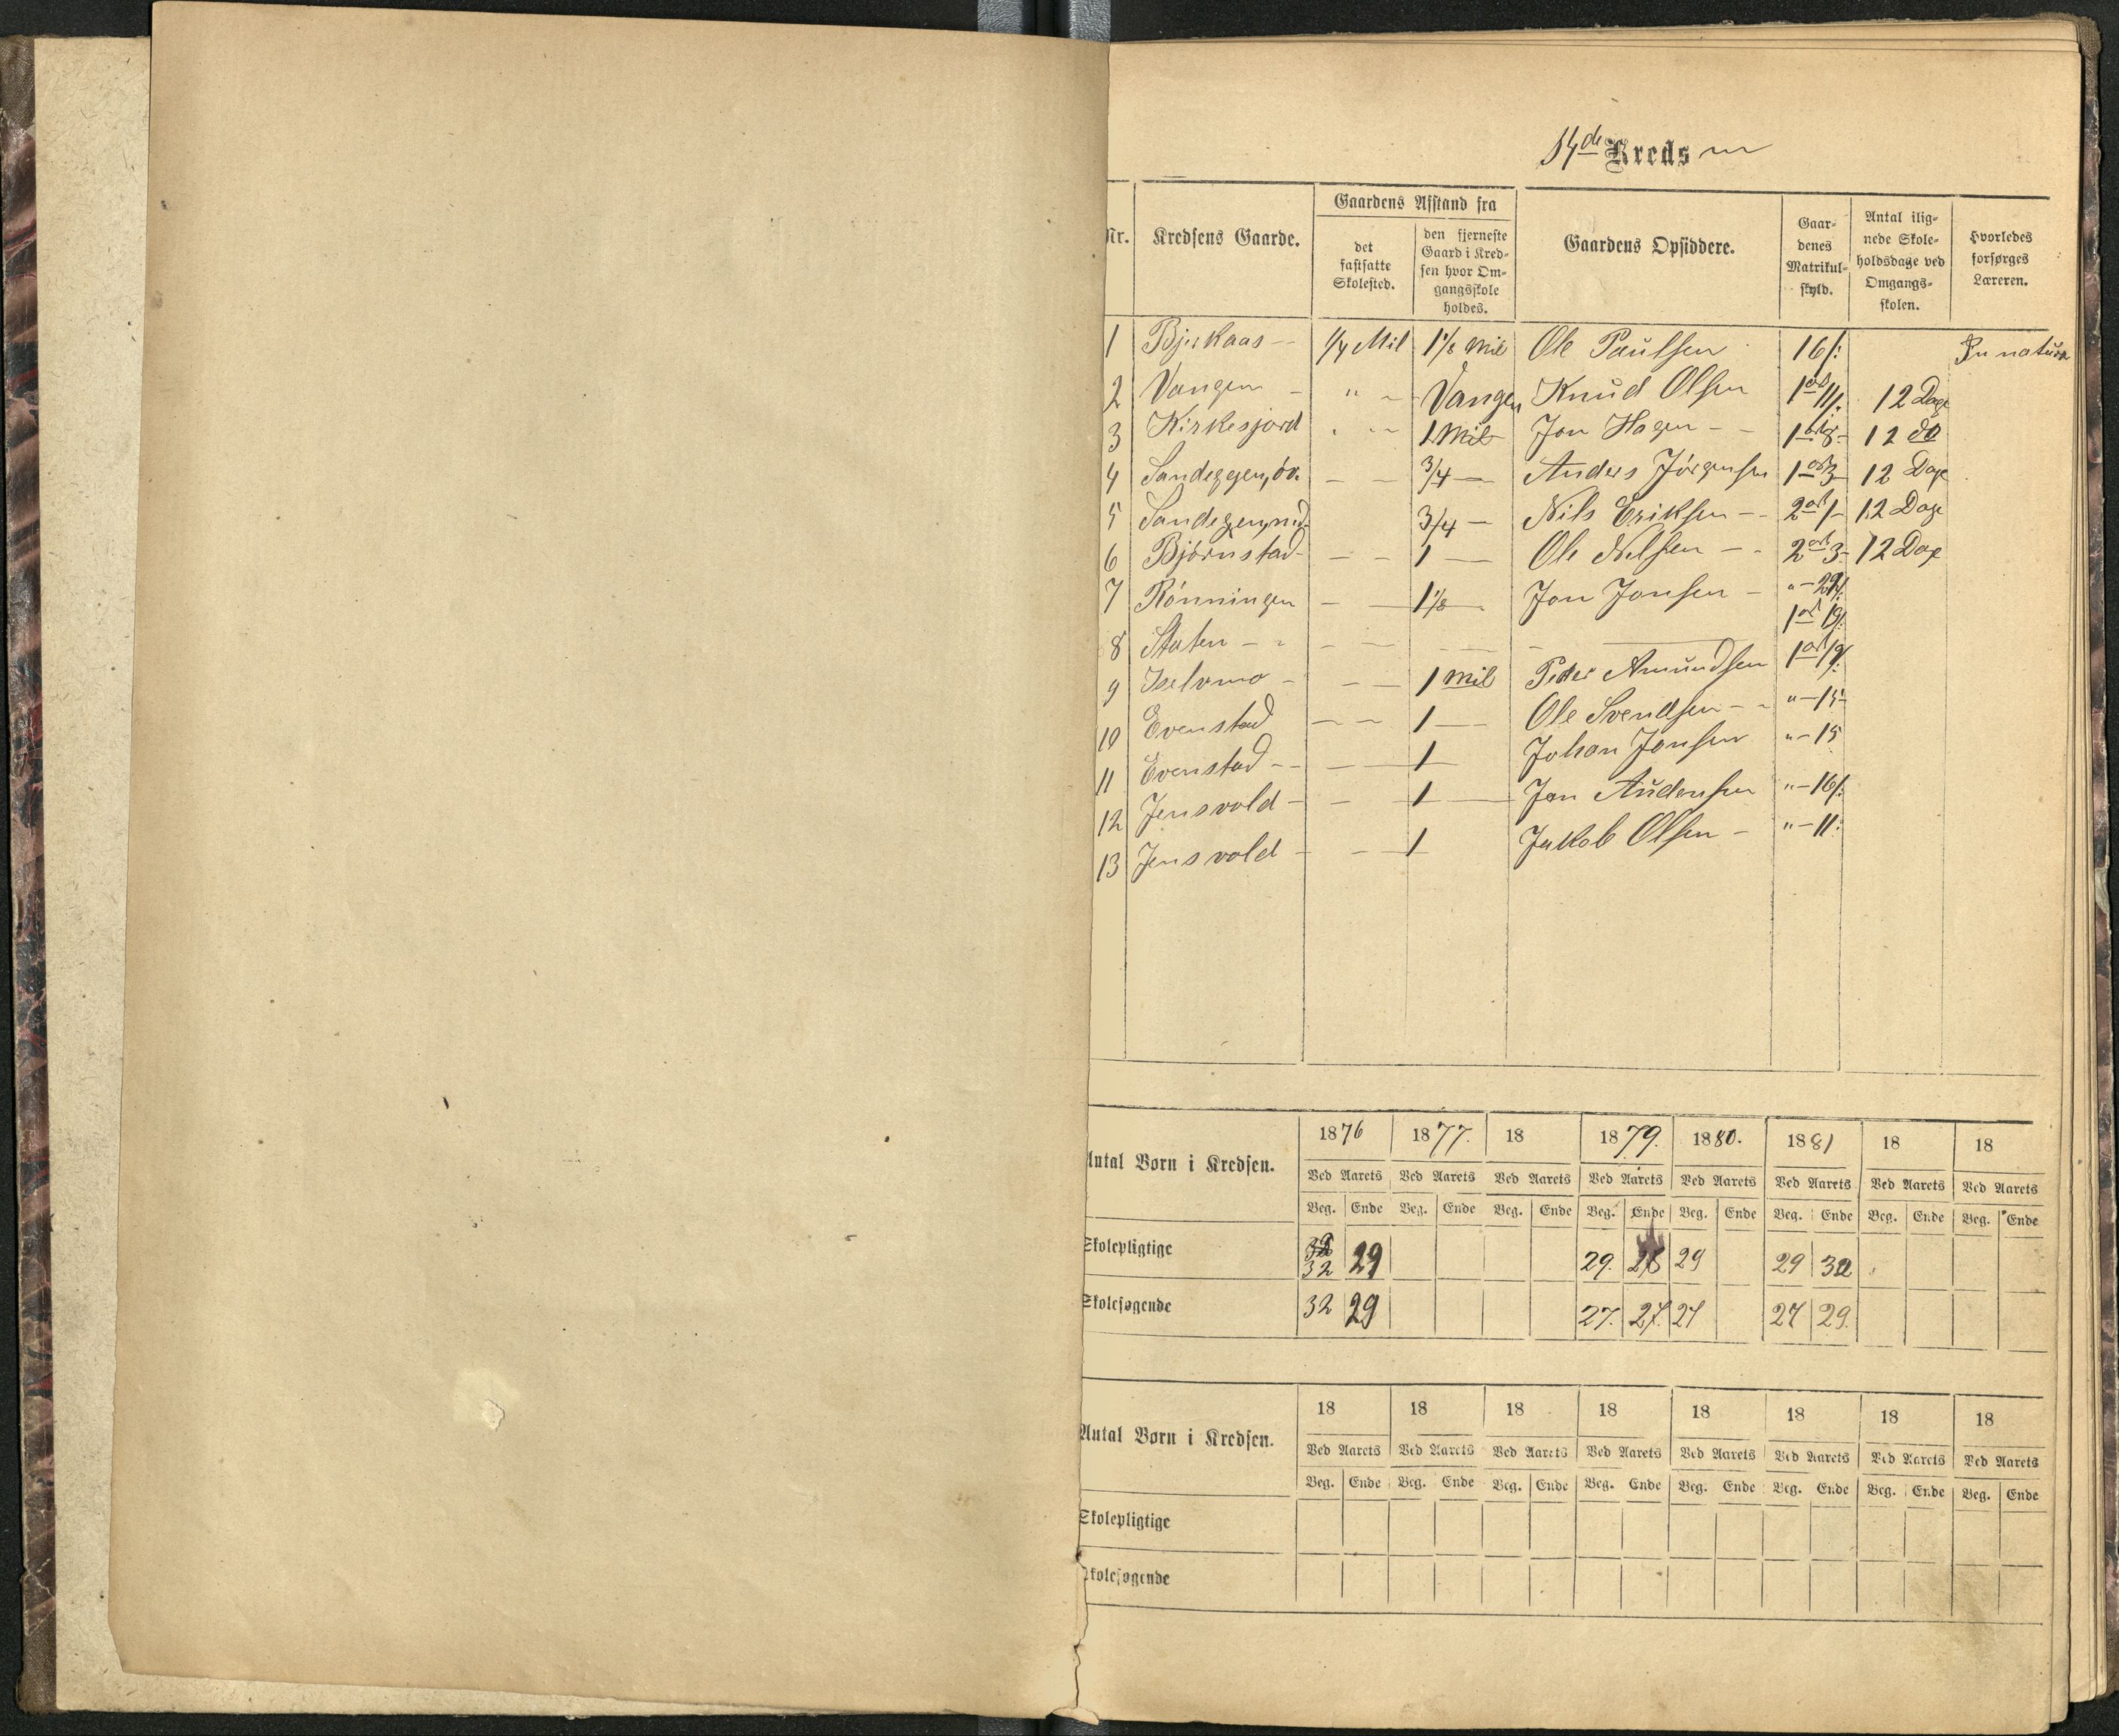 Kreds
Nr. Kredsens Gaarde. Gaardens Afstand fra det fastsatte Skolested. den fjerneste Gaard i Kredsen hvor Omgangsskole holdes. Gaardens Opsiddere. Gaardenes Matrikulskyld. Antal ilignede Skoleholdsdage ved Omgangsskolen. Hvorledes forsørges Læreren.
1 Bjerkaas 1/4 Mil 1 1/8 Mil Ole Paulsen 16 In natura
2 Vangen " Vangen Knud Olsen 12 Dage
3 Kirkesjord 1 Mil Jon Hagen 12 do
4 Sandeggen, öv. 3/4 Anders Jörgensen 1 ort 3 12 Dage
5 Sandeggen, ned. 3/4 Nils Eriksen 2 ort 1 12 Dage
6 Björnstad 1 Ole Nilsen 2 ort 3 12 Dage
7 Rönningen 1 1/8 Jon Jonsen
1 ort 19
8 Staten
9 Iselvmo 1 Mil Peder Amundsen 1 ort 19
10 Evenstad 1 Ole Svendsen " 15
11 Evenstad 1 Johan Jonsen " 15
12 Jensvold 1 Jon Audensen " 16
13 Jensvold 1 Jakob Olsen " 11
Antal Børn i Kredsen. 1876 1877. 18 1879. 1880. 1881 18 18
Ved Aarets Ved Aarets Ved Aarets Ved Aarets Ved Aarets Ved Aarets Ved Aarets Ved Aarets
Beg. Ende Beg. Ende Beg. Ende Beg. Ende Beg. Ende Beg. Ende Beg. Ende Beg. Ende
Skolepligtige 32 29 29. 28 29 29 32
Skolesøgende 32 29 27. 27. 27 27 29.
Antal Børn i Kredsen. 18 18 18 18 18 18 18 18
Ved Aarets Ved Aarets Ved Aarets Ved Aarets Ved Aarets Ved Aarets Ved Aarets Ved Aarets
Beg. Ende Beg. Ende Beg. Ende Beg. Ende Beg. Ende Beg. Ende Beg. Ende Beg. Ende
Skolepligtige
Skolesøgende